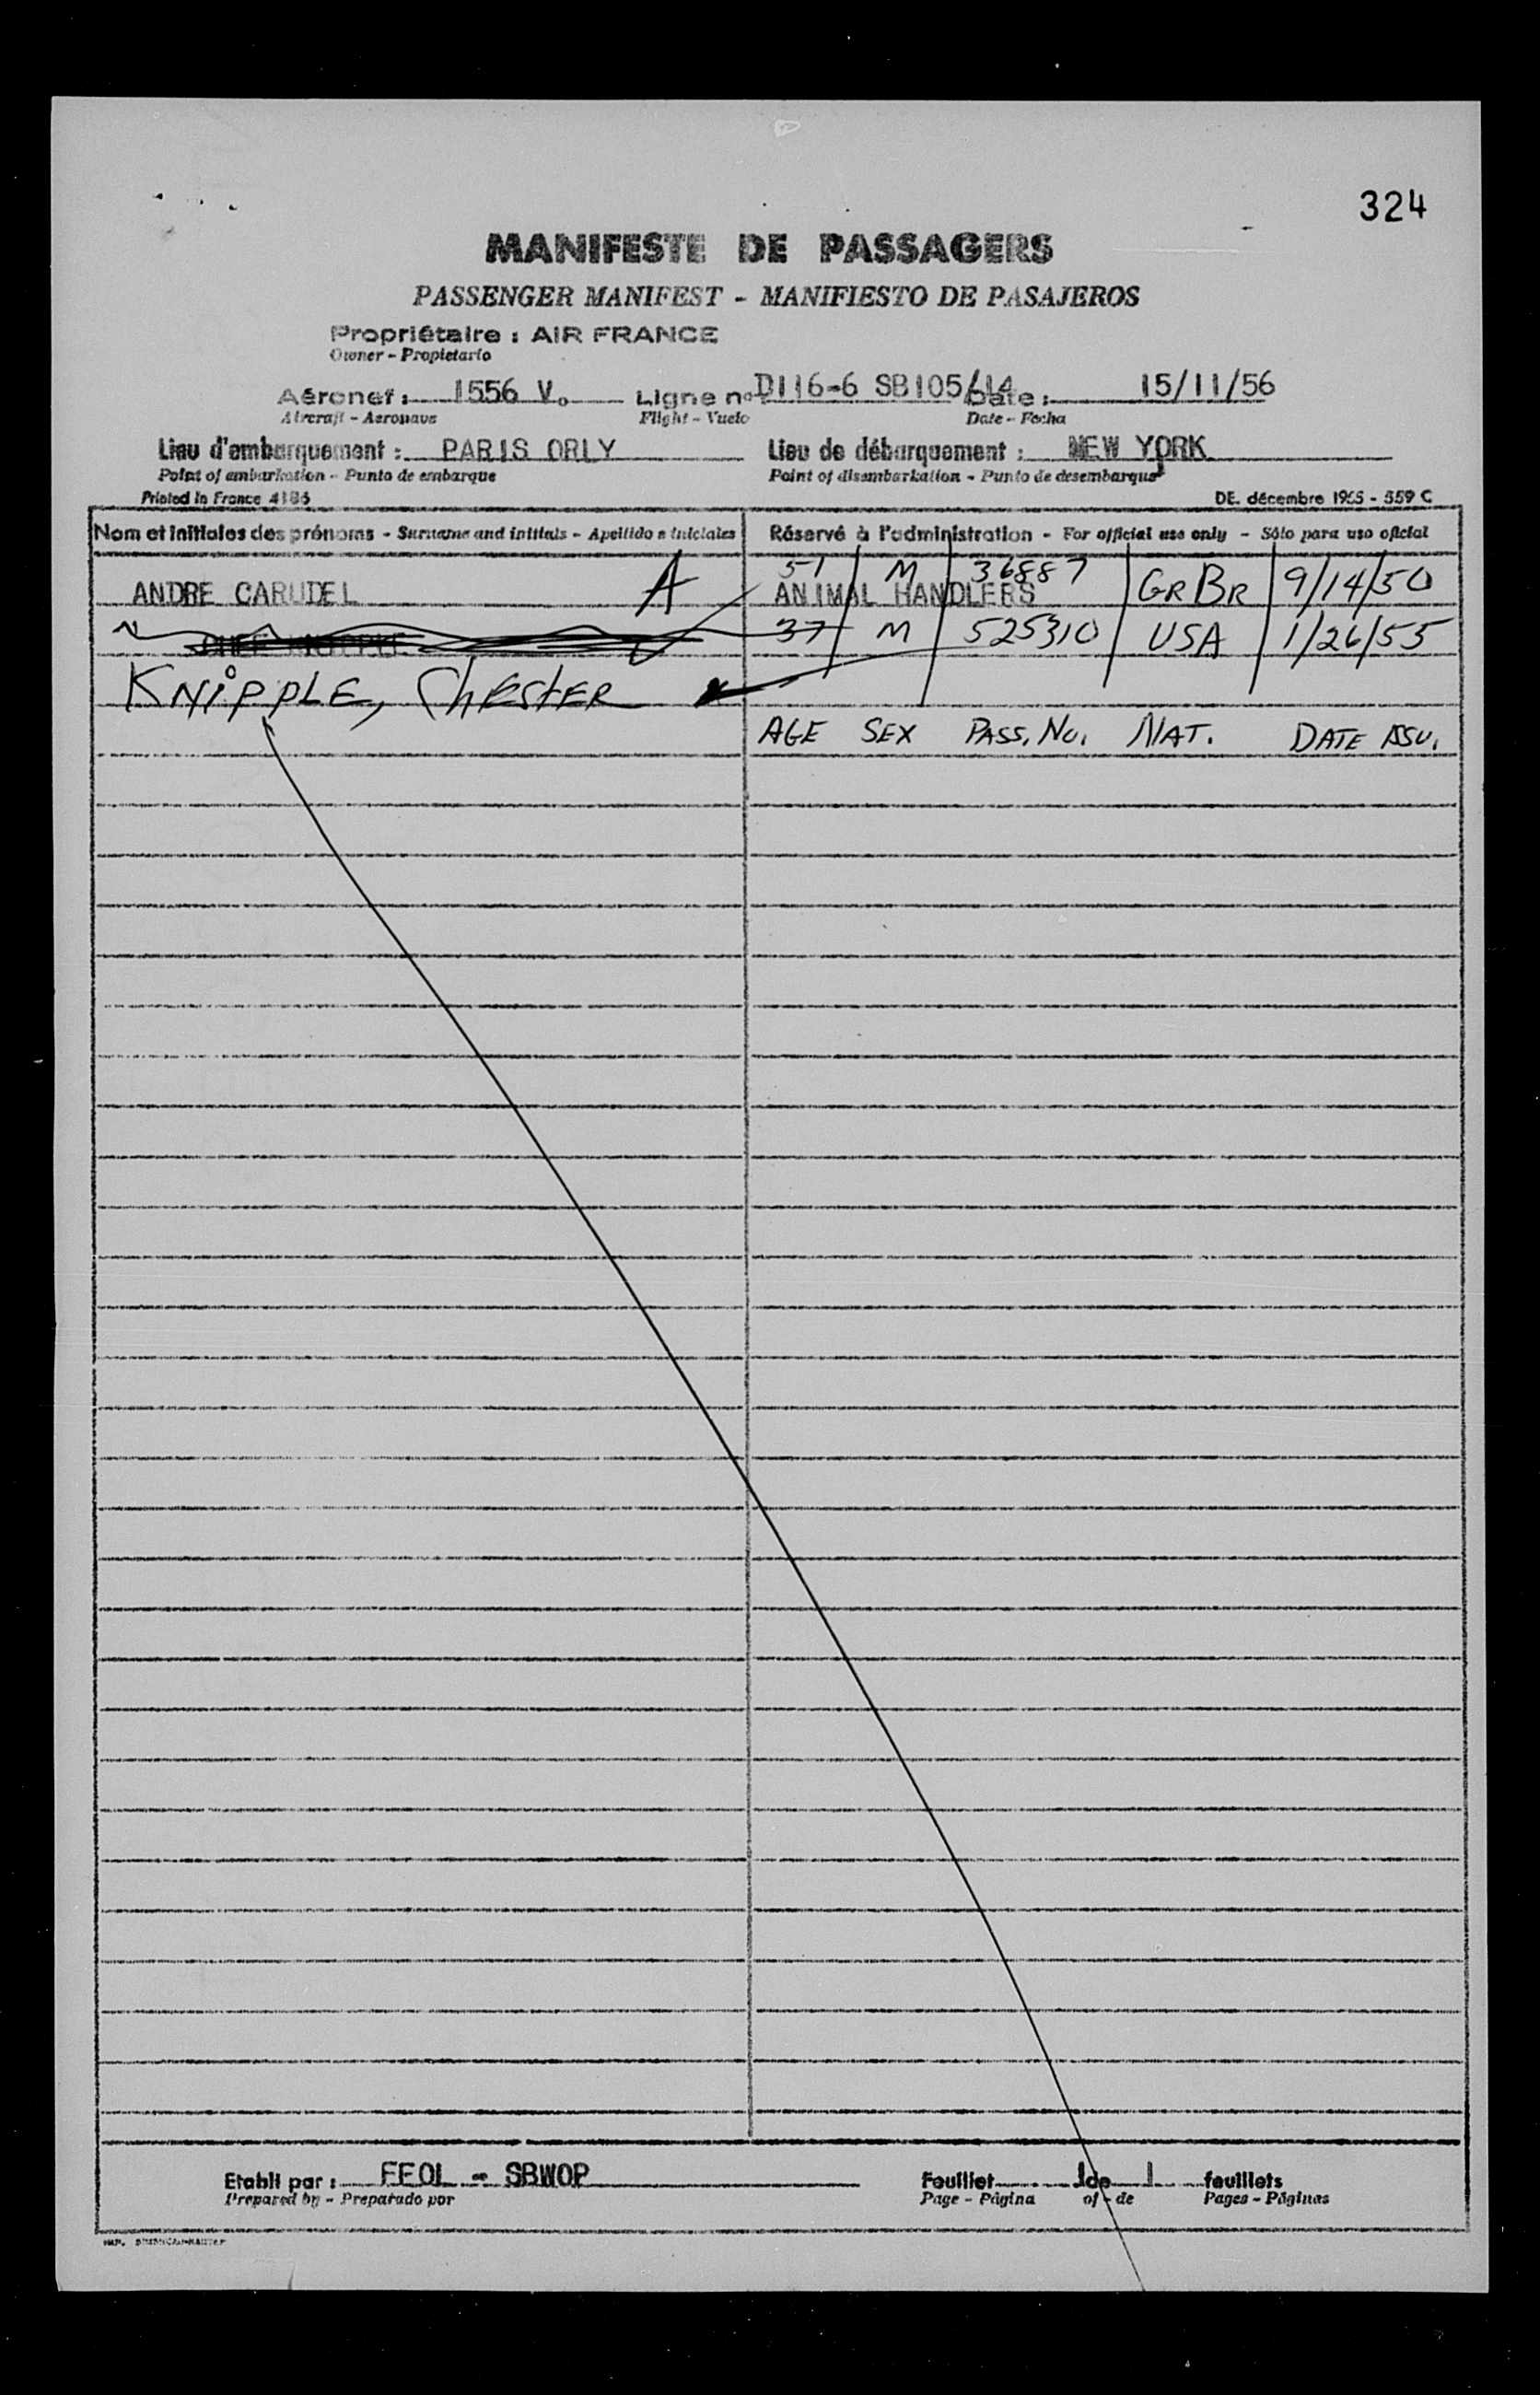 324
MANIFESTE DE PASSAGERS
PASSENGER MANIFEST - MANIFIESTO DE PASAJEROS
Propriétaire : AIR FRANCE
Owner - Propietario
Aéronef : 1556 V. Ligne no D116-6 SB105/14 Date : 15/11/56
Aircraft - Aeronave Flight - Vuelo Date - Fecha
Lieu d'embarquement : PARIS ORLY Lieu de débarquement : NEW YORK
Point of embarkation - Punto de embarque Point of disembarkation - Punto de desembarque
Printed in France 4186 DE. décembre 1955 - 559 C
Nom et initiales des prénoms - Surname and initials - Apellido e iniciales Réservé à l'administration - For official use only - Sólo para uso oficial
51 M 36887 GR BR 9/14/50
ANDRE CARUDEL A ANIMAL HANDLERS
37 M 525310 USA 1/26/55
KNIPPLE, CHESTER
AGE SEX PASS. NO. NAT. DATE ISSU.
Etabli par : FFOL - SBWOP Feuillet 1 de 1 feuillets
Prepared by - Preparado por Page - Página of - de Pages - Páginas